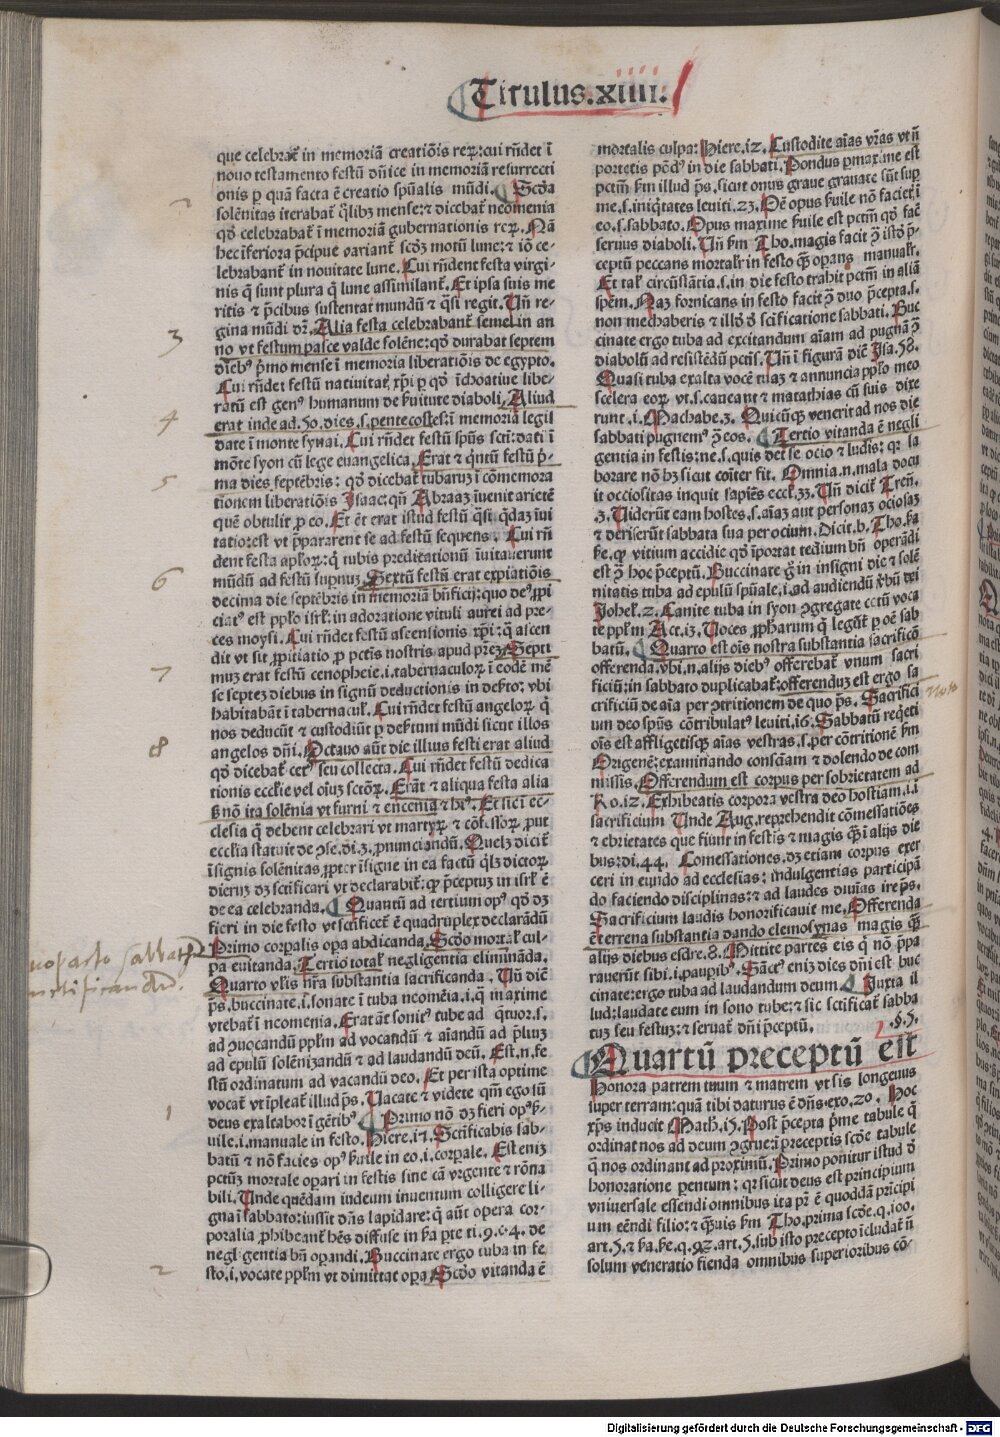 Titulus.xiiii.
que celebrat̄ in memoriā creatiōis reꝝ: cui rn̄det ī
nouo testamento festū dn̄ice in memoriā resurrecti
onis ꝑ quā facta ē creatio spūalis mūdi. Scd̓a
solēnitas iterabat̄ q̄libꝫ mense: ⁊ dicebat̄ neomenia
qꝫ celebrabat̄ ī memoriā gubernationis reꝝ. Nā
hec īferiora p̄cipue variant̄ scd̓ꝫ motū lune: ⁊ iō ce-
lebrabant̄ in nouitate lune. Cui rn̄dent festa virgi-
nis q̄ sunt plura q̄ lune assimilant̄. Et ipsa suis me
ritis ⁊ p̄cibus sustentat mundū ⁊ q̄si regit. Un̄ re-
gina mūdi dr̄. Alia festa celebrabant̄ semel in an
no vt festum pasce valde solēne: qd̓ durabat septem
dieb⁹ p̄mo mense ī memoria liberatiōis de egypto.
Cui rn̄det festū natiuitat̄ xp̄i ꝑ qd̓ īchoatiue libe-
ratū est gen⁹ humanum de ẜuitute diaboli. Aliud
erat inde ad.50.dies.s.pentecostes: ī memoria legis
date ī monte synai. Cui rn̄det festū spūs scti: dati ī
mōte syon cū lege euangelica. Erat ⁊ q̄ntū festū p̄-
ma dies septēbris: qd̓ dicebat̄ tubaruꝫ ī cōmemora
tionem liberatiōis Isaac: qn̄ Abraaꝫ īuenit arietē
quē obtulit ꝓ eo. Et ēt erat istud festū q̄si q̄daꝫ īui
tatio: est vt p̄pararent se ad festū sequens. Cui rn̄
dent festa aplōꝝ: q̄ tubis predicationū īuitauerunt
mūdū ad festū supnuꝫ. Sextū festū erat expiatiōis
decima die septēbris in memoriā bn̄ficij: quo de⁹ ꝓpi
ciat⁹ est pplo isrl̓: in adoratione vituli aurei ad pre-
ces moysi. Cui rn̄det festū ascensionis xp̄i: q̄ ascen
dit vt sit ꝓpitiatio ꝓ pctīs nostris apud prēꝫ. Septi
muꝫ erat festū cenopheie.i.tabernaculoꝝ ī eodē mē
se septeꝫ diebus in signū deductionis in deẜto: vbi
habitabāt ī tabernacul̓. Cui rn̄det festū angeloꝝ q̄
nos deducūt ⁊ custodiūt ꝑ deẜtum mūdi sicut illos
angelos dn̄i. Octauo aūt die illius festi erat aliud
qd̓ dicebat̄ cet⁹ seu collecta. Cui rn̄det festū dedica
tionis eccl̓ie vel oīuꝫ sctōꝝ. Erāt ⁊ aliqua festa alia
ẜ nō ita solēnia vt furni ⁊ encenia ⁊ hi⁹. Et sic ī ec-
clesia q̄ debent celebrari vt martyꝝ ⁊ cōfessoꝝ, put
eccl̓ia statuit de ꝯse.di.3.pnunciandū. Quelꝫ dicit̄
īsignis solēnitas ꝓpter īsigne in ea factū q̄lꝫ dictoꝝ
dieruꝫ dꝫ sctificari vt declarabit̄: qꝛ p̄ceptuꝫ in isrl̓ ē
de ea celebranda. Quantū ad tertium op⁹ qd̓ dꝫ
fieri in die festo vt sctificet̄ ē quadruplex declarādū
Primo corꝑalis opa abdicanda. Scd̓o mortal̓ cul-
pa euitanda. Tertio total̓ negligentia elimināda.
Quarto vl̓is nr̄a substantia sacrificanda. Un̄ dicit̄
pš. buccinate.i.sonate ī tuba neomēia.i.q̄ maxime
vtebat̄ ī neomenia. Erat āt sonit⁹ tube ad q̄tuor.s.
ad ꝯuocandū pplm ad vocandū ⁊ aīandū ad p̄liuꝫ
ad epulū solēnizandū ⁊ ad laudandū deū. Est.n.fe
stū ordinatum ad vacandū deo. Et per ista optime
vocat̄ vt īpleat̄ illud pš. Uacate ⁊ videte qm̄ ego sū
deus exaltabor ī gētib⁹ Primo nō dꝫ fieri op⁹ ẜ-
uile.i.manuale in festo. Hiere.17. Sctificabis sab-
batū ⁊ nō facies op⁹ ẜuile in eo.i.corpale. Est eniꝫ
pctūꝫ mortale oꝑari in festis sine cā vrgente ⁊ rōna
bili. Unde quēdam iudeum inuentum colligere li-
gna ī sabbato: iussit dn̄s lapidare: q̄ aūt opera cor-
poralia ꝓhibeant̄ hēs diffuse in ẜa pte ti.9.c.4. de
negligentia bn̄ opandi. Buccinate ergo tuba in fe
sto.i.vocate pplm vt dimittat opa. Scd̓o vitanda ē
mortalis culpa: Hiere.17. Custodite aīas vr̄as vt n̄
portetis pōd⁹ in die sabbati. Pondus ꝑmaxime est
pctm̄ ẜm illud pš. sicut onus graue grauate sūt sup
me.s.iniq̄tates leuiti.23. Oē opus ẜuile nō faciet̄ ī
eo.s.sabbato. Opus maxime ẜuile est pctm̄ qd̓ fac̄
seruus diaboli. Un̄ ẜm Tho.magis facit ꝯ istd̓ p̄-
ceptū peccans mortalr̄ in festo q̄ꝫ opans manualr̄.
Et tal̓ circūstātia.s.in die festo trahit pctm̄ in aliā
spēm. Naꝫ fornicans in festo facit ꝯ duo p̄cepta.s.
non mechaberis ⁊ illd̓ d̓ sctificatione sabbati. Buc
cinate ergo tuba ad excitandum aīam ad pugnā ꝯ
diabolū ad resistēdū pctis. Un̄ ī figurā dic̄ Isa.58.
Quasi tuba exalta vocē tuaꝫ ⁊ annuncia pplo meo
scelera eoꝝ vt.s.caueant ⁊ matathias cū suis dixe
runt.i. Machabe.3. Quicūqꝫ venerit ad nos die
sabbati pugnem⁹ ꝯ eos. Tertio vitanda ē negli
gentia in festis: ne.s.quis det se ocio ⁊ ludis: qꝛ la
borare nō hꝫ sicut cōiter fit. Omnia.n.mala docu
it occiositas inquit sapiēs eccl̓.33. Un̄ dicit̄ Tren̄.
3. Uiderūt eam hostes.s.aīaꝫ aut personaꝫ ociosaꝫ
⁊ deriserūt sabbata sua per ocium. Dicit.b. Tho. ẜa
ẜe. qꝫ vitium accidie qd̓ īportat tedium bn̄ operādi
est ꝯ hoc p̄ceptū. Buccinate g̊ in insigni die ⁊ solē
nitatis tuba ad epulū spūale.i.ad audiendū v̓bū dei
Iohel̓.2. Canite tuba in syon ꝯgregate cetū voca
te pplm Act.13. Uoces ꝓphārum q̄ legūt̄ ꝑ oē sab
batū. Quarto est oīs nostra substantia sacrificā
offerenda. vbi.n.alijs dieb⁹ offerebat̄ vnum sacri
ficiū: in sabbato duplicabat̄: offerenduꝫ est ergo sa
crificiū de aīa per ꝯtritionem de quo pš. Sacrifici
um deo spūs cōtribulat⁹ leuiti.16. Sabbatū reqēti
oīs est affligetisqꝫ aīas vestras.s.per cōtritionē ẜm
Origenē: examinando consciam ⁊ dolendo de com
missis. Offerendum est corpus per sobrietatem ad
Ro.12. Exhibeatis corpora vestra deo hostiam.i.
sacrificium Unde Aug.reprehendit cōmessatiōes
⁊ ebrietates que fiunt in festis ⁊ magis q̄ꝫ ī alijs die
bus: di.44. Comessationes. dꝫ etiam corpus exer
ceri in eundo ad ecclesias: indulgentias participā
do faciendo disciplinas: ⁊ ad laudes diuīas ire pš.
Sacrificium laudis honorificauit me. Offerenda
ēt terrena substantia dando elemosynas magis q̄ꝫ
alijs diebus esdre.8. Mittite partes eis q̄ nō p̄pa
rauerūt sibi.i.paupib⁹. Sāct⁹ eniꝫ dies dn̄i est buc
cinate: ergo tuba ad laudandum deum. Iuxta il
lud: laudate eum in sono tube: ⁊ sic sctificat̄ sabba
tuꝫ seu festuꝫ: ⁊ seruat̄ dn̄i p̄ceptū. .§.5.
Quartū preceptū est
Honora patrem tuum ⁊ matrem vt sis longeuus
super terram: quā tibi daturus ē dn̄s.exo.20. Hoc
xp̄s inducit Math.15. Post p̄cepta p̄me tabule q̄
ordinat nos ad deum ꝯgrue: ī preceptis scd̓e tabule
q̄ nos ordinant ad proximū. Primo ponitur istud d̓
honoratione parentum: qꝛ sicut deus est principium
vniuersale essendi omnibus ita pr̄ ē quoddā prīcipi
um eēndi filio: ⁊ q̄ꝫuis ẜm Tho.prima scd̓e.q.100.
art.5. ⁊ ẜa.ẜe.q.92.art.5. sub isto precepto īcludat̄ n̄
solum veneratio fienda omnibus superioribus cō-
2
3
4
5
6
7
8
1
2
Digitalisierung gefördert durch die Deutsche Forschungsgemeinschaft - DFG